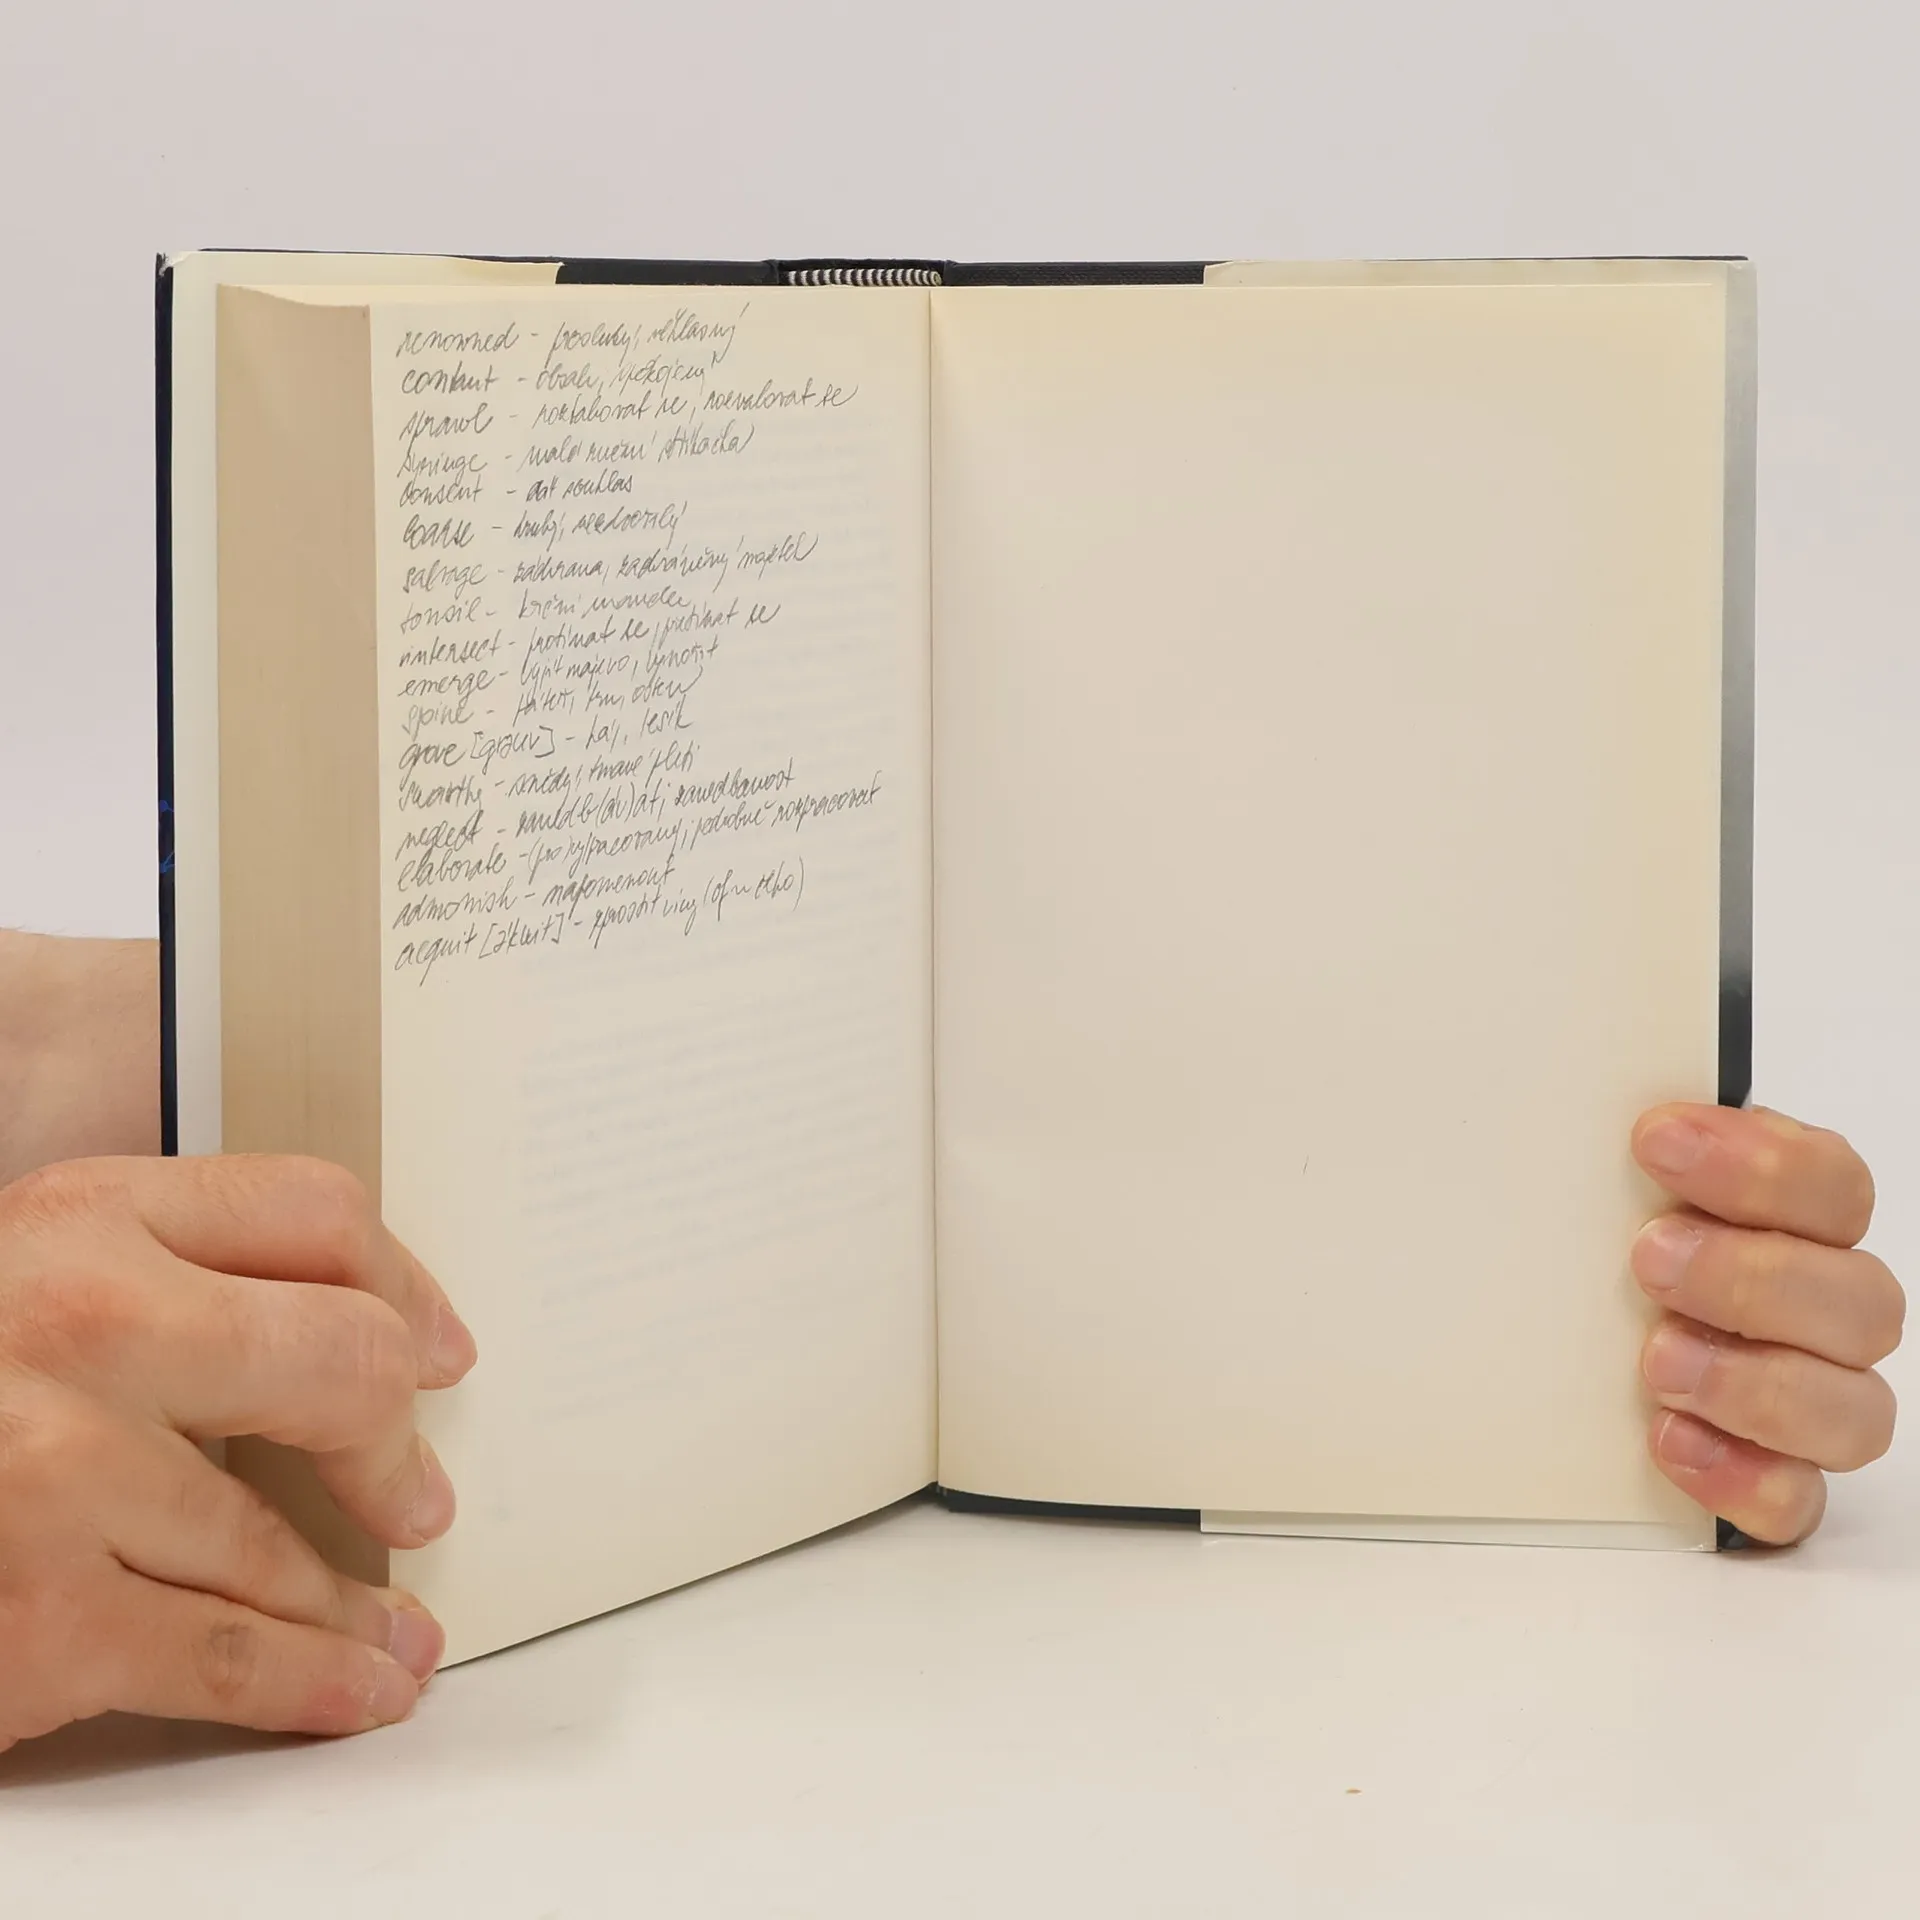 renowned - proslulý, věhlasný
content - obsah, spokojený
sprawl - roztahovat se, rozvalovat se
syringe - malá ruční stříkačka
consent - dát souhlas
coarse - hrubý, nezdvořilý
salvage - záchrana, zachráněný majetek
tonsil - krční mandle
intersect - protínat se, protínat se
emerge - vyjít najevo, vynořit
spine - páteř, trn, osten
grove [grəuv] - háj, lesík
swarthy - snědý, tmavé pleti
neglect - zanedb(áv)at; zanedbanost
elaborate - (pro)vypracovaný; podobně rozpracovat
admonish - napomenout
acquit [ə'kwit] - zprostit viny (of ~ čeho)